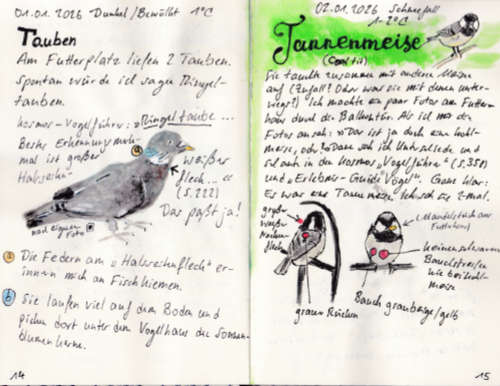 01.01.2026 Dunkel/Bewölkt 1°C
Tauben
Am Futterplatz liefen 2 Tauben.
Spontan würde ich sagen Ringel-
tauben.
Kosmos-Vogelführer: »Ringeltaube...
Bestes Erkennungsmerk-
mal ist großer
Halsseiten-
weißer
fleck...«
(S.222)
Das paßt ja!
nach eigenem
Foto
a Die Federn am »Halsseitenfleck« er-
innern mich an Fischkiemen.
b Sie laufen viel auf dem Boden und
picken dort unter dem Vogelhaus die Sonnen-
blumenkerne.
14
02.01.2026 Schneefall
1-2°C
Tannenmeise
(Coal tit)
Sie tauchte zusammen mit anderen Meisen
auf (Zufall? Oder war sie mit denen unter-
wegs?) Ich machte ein paar Fotos am Futter-
haus durch die Balkontür. Als ich die
Fotos ansah: »Das ist ja doch eine Kohl-
meise, oder?« Dann sah ich Unterschiede und
sah auch in den Kosmos »Vogelführer« (S.358)
und »Erlebnis-Guide Vögel«. Ganz klar:
Es war eine Tannenmeise
großer
weißer
Nacken-
fleck
grauer Rücken
(Mandelstück aus
Futterhaus)
keinen schwarzen
Bauchstreifen
wie bei Kohl-
meise
Bauch graubeige/gelb
15